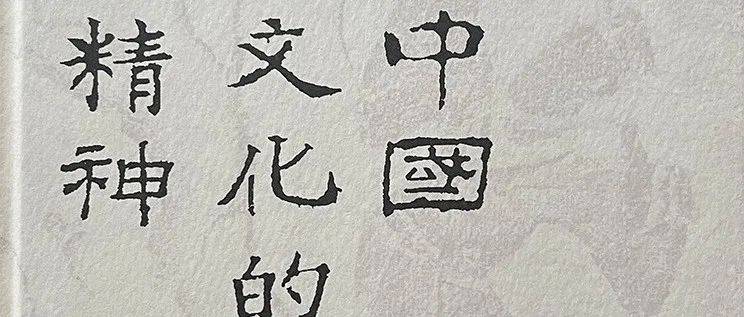 中國
文化的
精神